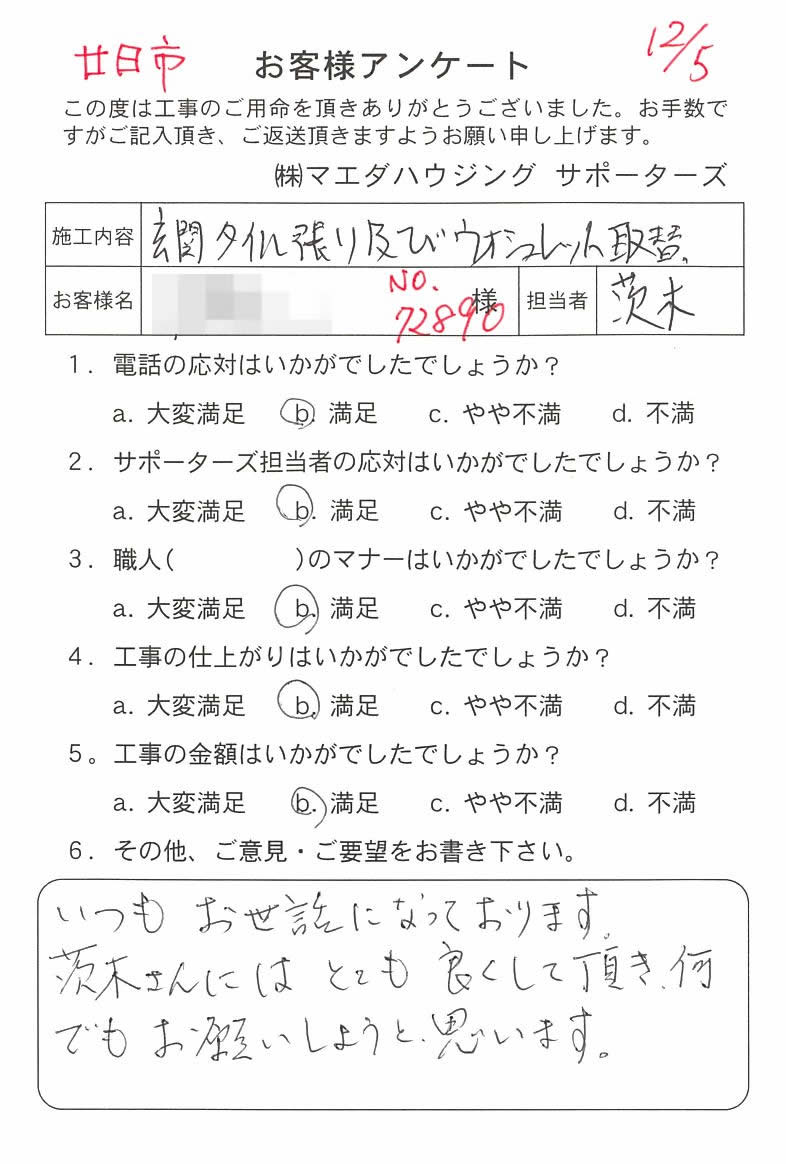 廿日市 お客様アンケート 12/5
この度は工事のご用命を頂きありがとうございました。お手数で
すがご記入頂き、ご返送頂きますようお願い申し上げます。
㈱マエダハウジング サポーターズ
施工内容 玄関タイル張り及びウオシュレット取替、
お客様名 NO. 72890 様 担当者 茨木
1. 電話の応対はいかがでしたでしょうか?
a. 大変満足 b. 満足 c. やや不満 d. 不満
2. サポーターズ担当者の応対はいかがでしたでしょうか?
a. 大変満足 b. 満足 c. やや不満 d. 不満
3. 職人( )のマナーはいかがでしたでしょうか?
a. 大変満足 b. 満足 c. やや不満 d. 不満
4. 工事の仕上がりはいかがでしたでしょうか?
a. 大変満足 b. 満足 c. やや不満 d. 不満
5。工事の金額はいかがでしたでしょうか?
a. 大変満足 b. 満足 c. やや不満 d. 不満
6. その他、ご意見・ご要望をお書き下さい。
いつも お世話になっております。
茨木さんには とても 良くして頂き、何
でも お願いしようと、思います。